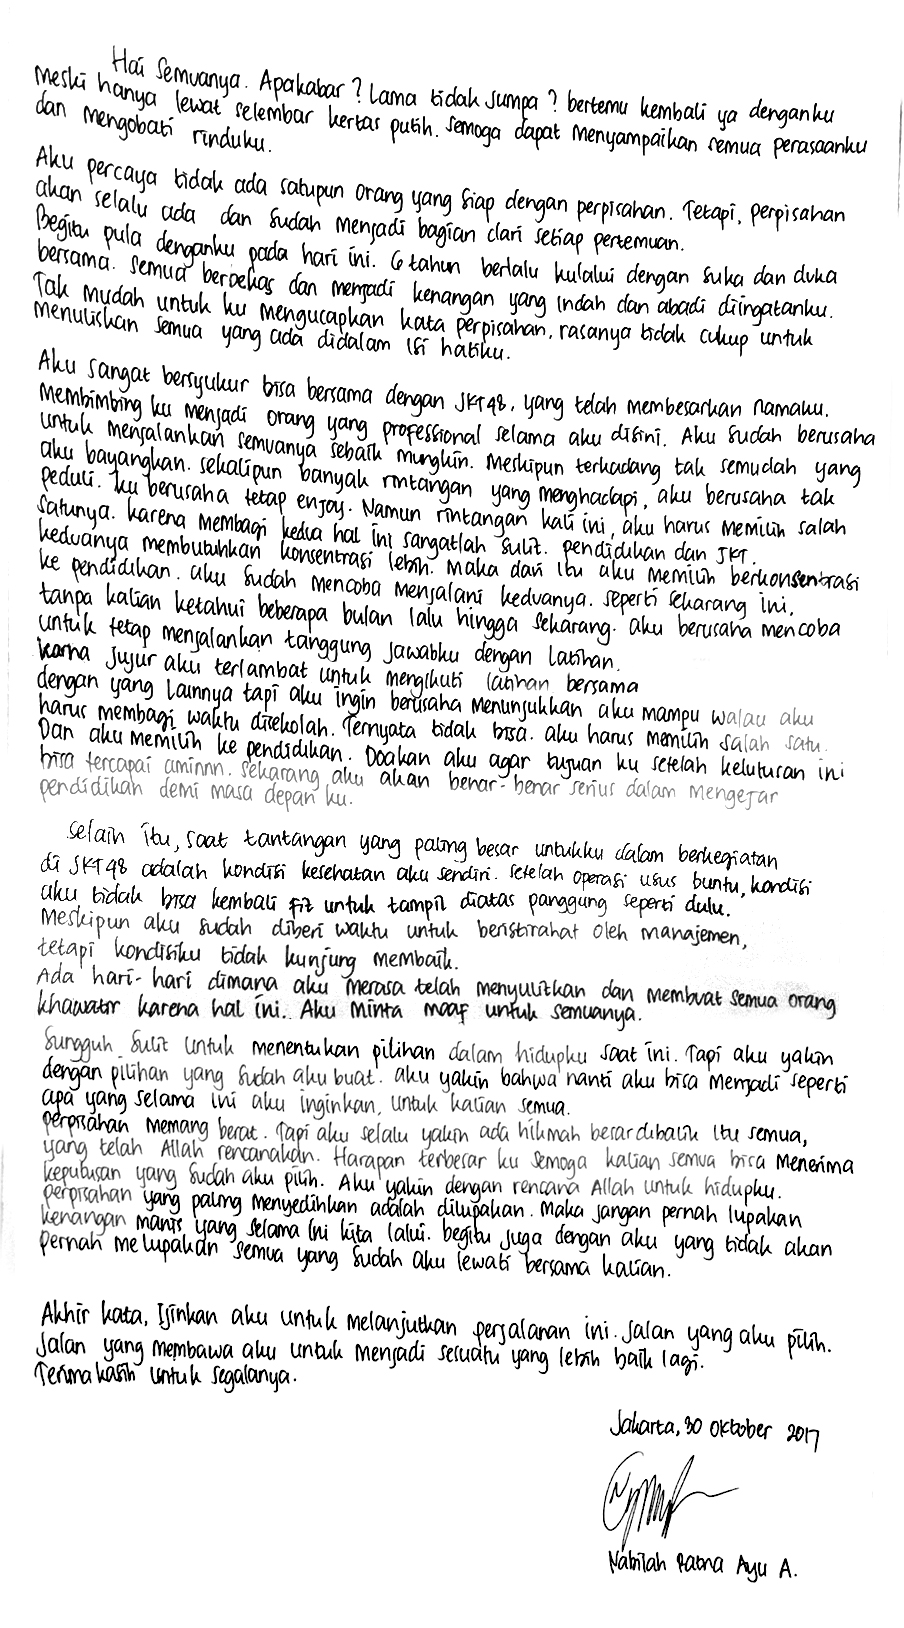 Hai semuanya. Apakabar? Lama tidak jumpa? bertemu kembali ya denganku
Meski hanya lewat selembar kertas putih. semoga dapat menyampaikan semua perasaanku
dan mengobati rinduku.
Aku percaya tidak ada satupun orang yang siap dengan perpisahan. Tetapi, perpisahan
akan selalu ada dan sudah menjadi bagian dari setiap pertemuan.
Begitu pula denganku pada hari ini. 6 tahun berlalu kulalui dengan suka dan duka
bersama. semua berbekas dan menjadi kenangan yang indah dan abadi diingatanku.
Tak mudah untuk ku mengucapkan kata perpisahan, rasanya tidak cukup untuk
menuliskan semua yang ada didalam isi hatiku.
Aku sangat bersyukur bisa bersama dengan JKT48, yang telah membesarkan namaku.
Membimbing ku menjadi orang yang professional selama aku disini. Aku sudah berusaha
untuk menjalankan semuanya sebaik mungkin. Meskipun terkadang tak semudah yang
aku bayangkan. sekalipun banyak rintangan yang menghadapi, aku berusaha tak
peduli. ku berusaha tetap enjoy. Namun rintangan kali ini, aku harus memilih salah
satunya. karena membagi kedua hal ini sangatlah sulit. pendidikan dan JKT.
keduanya membutuhkan konsentrasi lebih. Maka dari itu aku memilih berkonsentrasi
ke pendidikan. aku sudah mencoba menjalani keduanya. seperti sekarang ini,
tanpa kalian ketahui beberapa bulan lalu hingga sekarang. aku berusaha mencoba
untuk tetap menjalankan tanggung jawabku dengan latihan.
karna jujur aku terlambat untuk mengikuti latihan bersama
dengan yang lainnya tapi aku ingin berusaha menunjukkan aku mampu walau aku
harus membagi waktu disekolah. Ternyata tidak bisa. aku harus memilih salah satu.
Dan aku memilih ke pendidikan. Doakan aku agar tujuan ku setelah kelulusan ini
bisa tercapai aminnn. sekarang aku akan benar-benar serius dalam mengejar
pendidikan demi masa depan ku.
selain itu, saat tantangan yang paling besar untukku dalam berkegiatan
di JKT48 adalah kondisi kesehatan aku sendiri. setelah operasi usus buntu, kondisi
aku tidak bisa kembali fit untuk tampil diatas panggung seperti dulu.
Meskipun aku sudah diberi waktu untuk beristirahat oleh manajemen,
tetapi kondisiku tidak kunjung membaik.
Ada hari-hari dimana aku merasa telah menyulitkan dan membuat semua orang
khawatir karena hal ini. Aku minta maaf untuk semuanya.
Sungguh sulit untuk menentukan pilihan dalam hidupku saat ini. Tapi aku yakin
dengan pilihan yang sudah aku buat. aku yakin bahwa nanti aku bisa menjadi seperti
apa yang selama ini aku inginkan, untuk kalian semua.
perpisahan memang berat. Tapi aku selalu yakin ada hikmah besar dibalik itu semua,
yang telah Allah rencanakan. Harapan terbesar ku semoga kalian semua bisa menerima
keputusan yang sudah aku pilih. Aku yakin dengan rencana Allah untuk hidupku.
perpisahan yang paling menyedihkan adalah dilupakan. Maka jangan pernah lupakan
kenangan manis yang selama ini kita lalui. begitu juga dengan aku yang tidak akan
pernah melupakan semua yang sudah aku lewati bersama kalian.
Akhir kata, Ijinkan aku untuk melanjutkan perjalanan ini. Jalan yang aku pilih.
Jalan yang membawa aku untuk menjadi sesuatu yang lebih baik lagi.
Terima kasih untuk segalanya.
Jakarta, 30 Oktober 2017
Nabilah Ratna Ayu A.